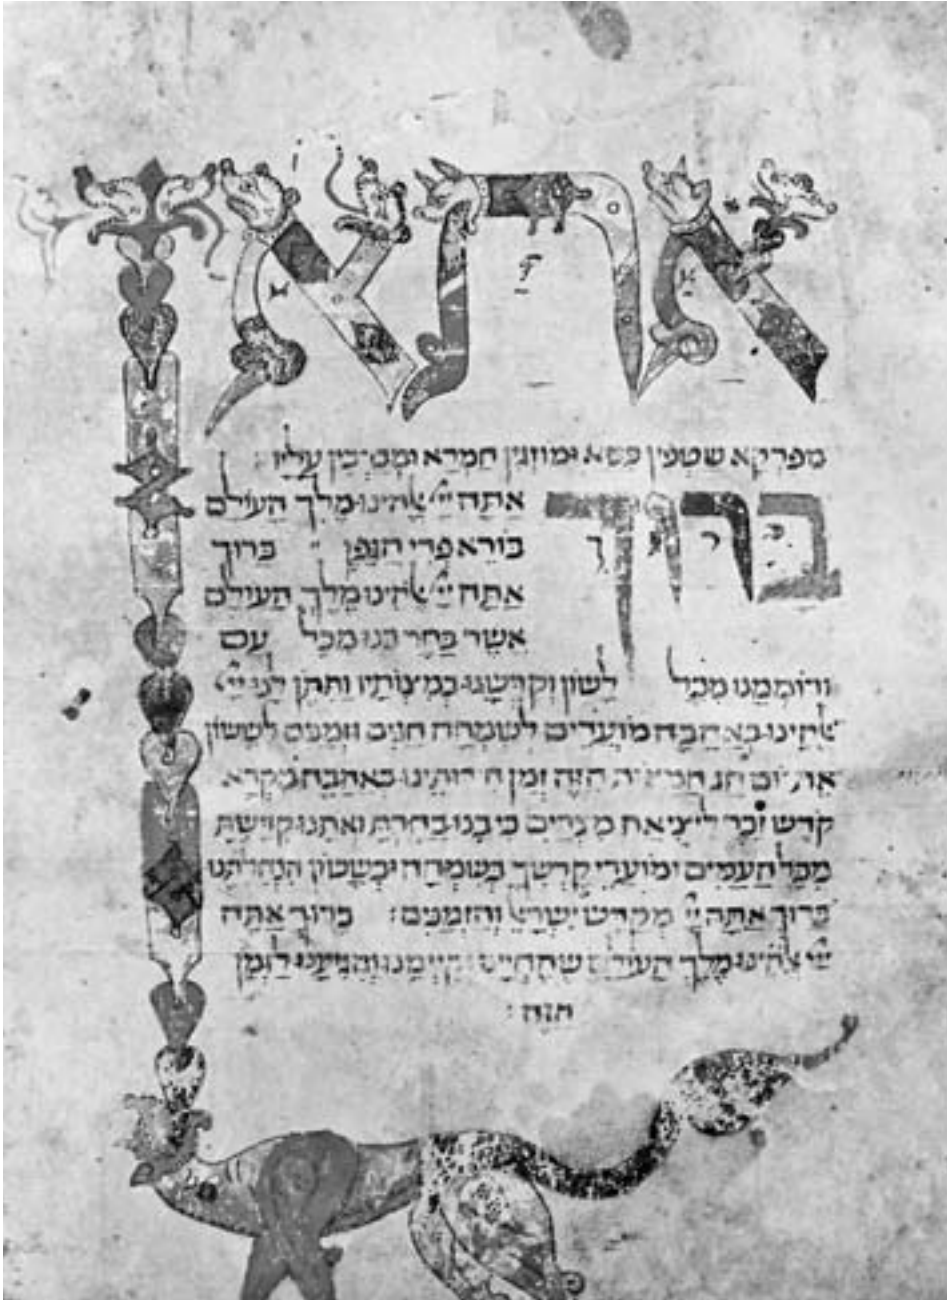 אתא
מפרקא שטפין כסא ומוזגין חמרא עליו
ברוך אתה יי אלהינו מלך העולם
בורא פרי הגפן ברוך
אתה יי אלהינו מלך העולם
אשר בחר בנו מכל עם
ורוממנו מכל לשון וקדשנו במצותיו ותתן לנו יי
אלהינו באהבה מועדים לשמחה חגים וזמנים לששון
את יום חג המצות הזה זמן חירותינו באהבה מקרא
קדש זכר ליציאת מצרים כי בנו בחרת ואתנו קידשת
מכל העמים ומועדי קדשך בשמחה ובששון הנחלתנו
ברוך אתה יי מקדש ישראל והזמנים: ברוך אתה
יי אלהינו מלך העולם שהחיינו וקיימנו והגיענו לזמן
הזה: